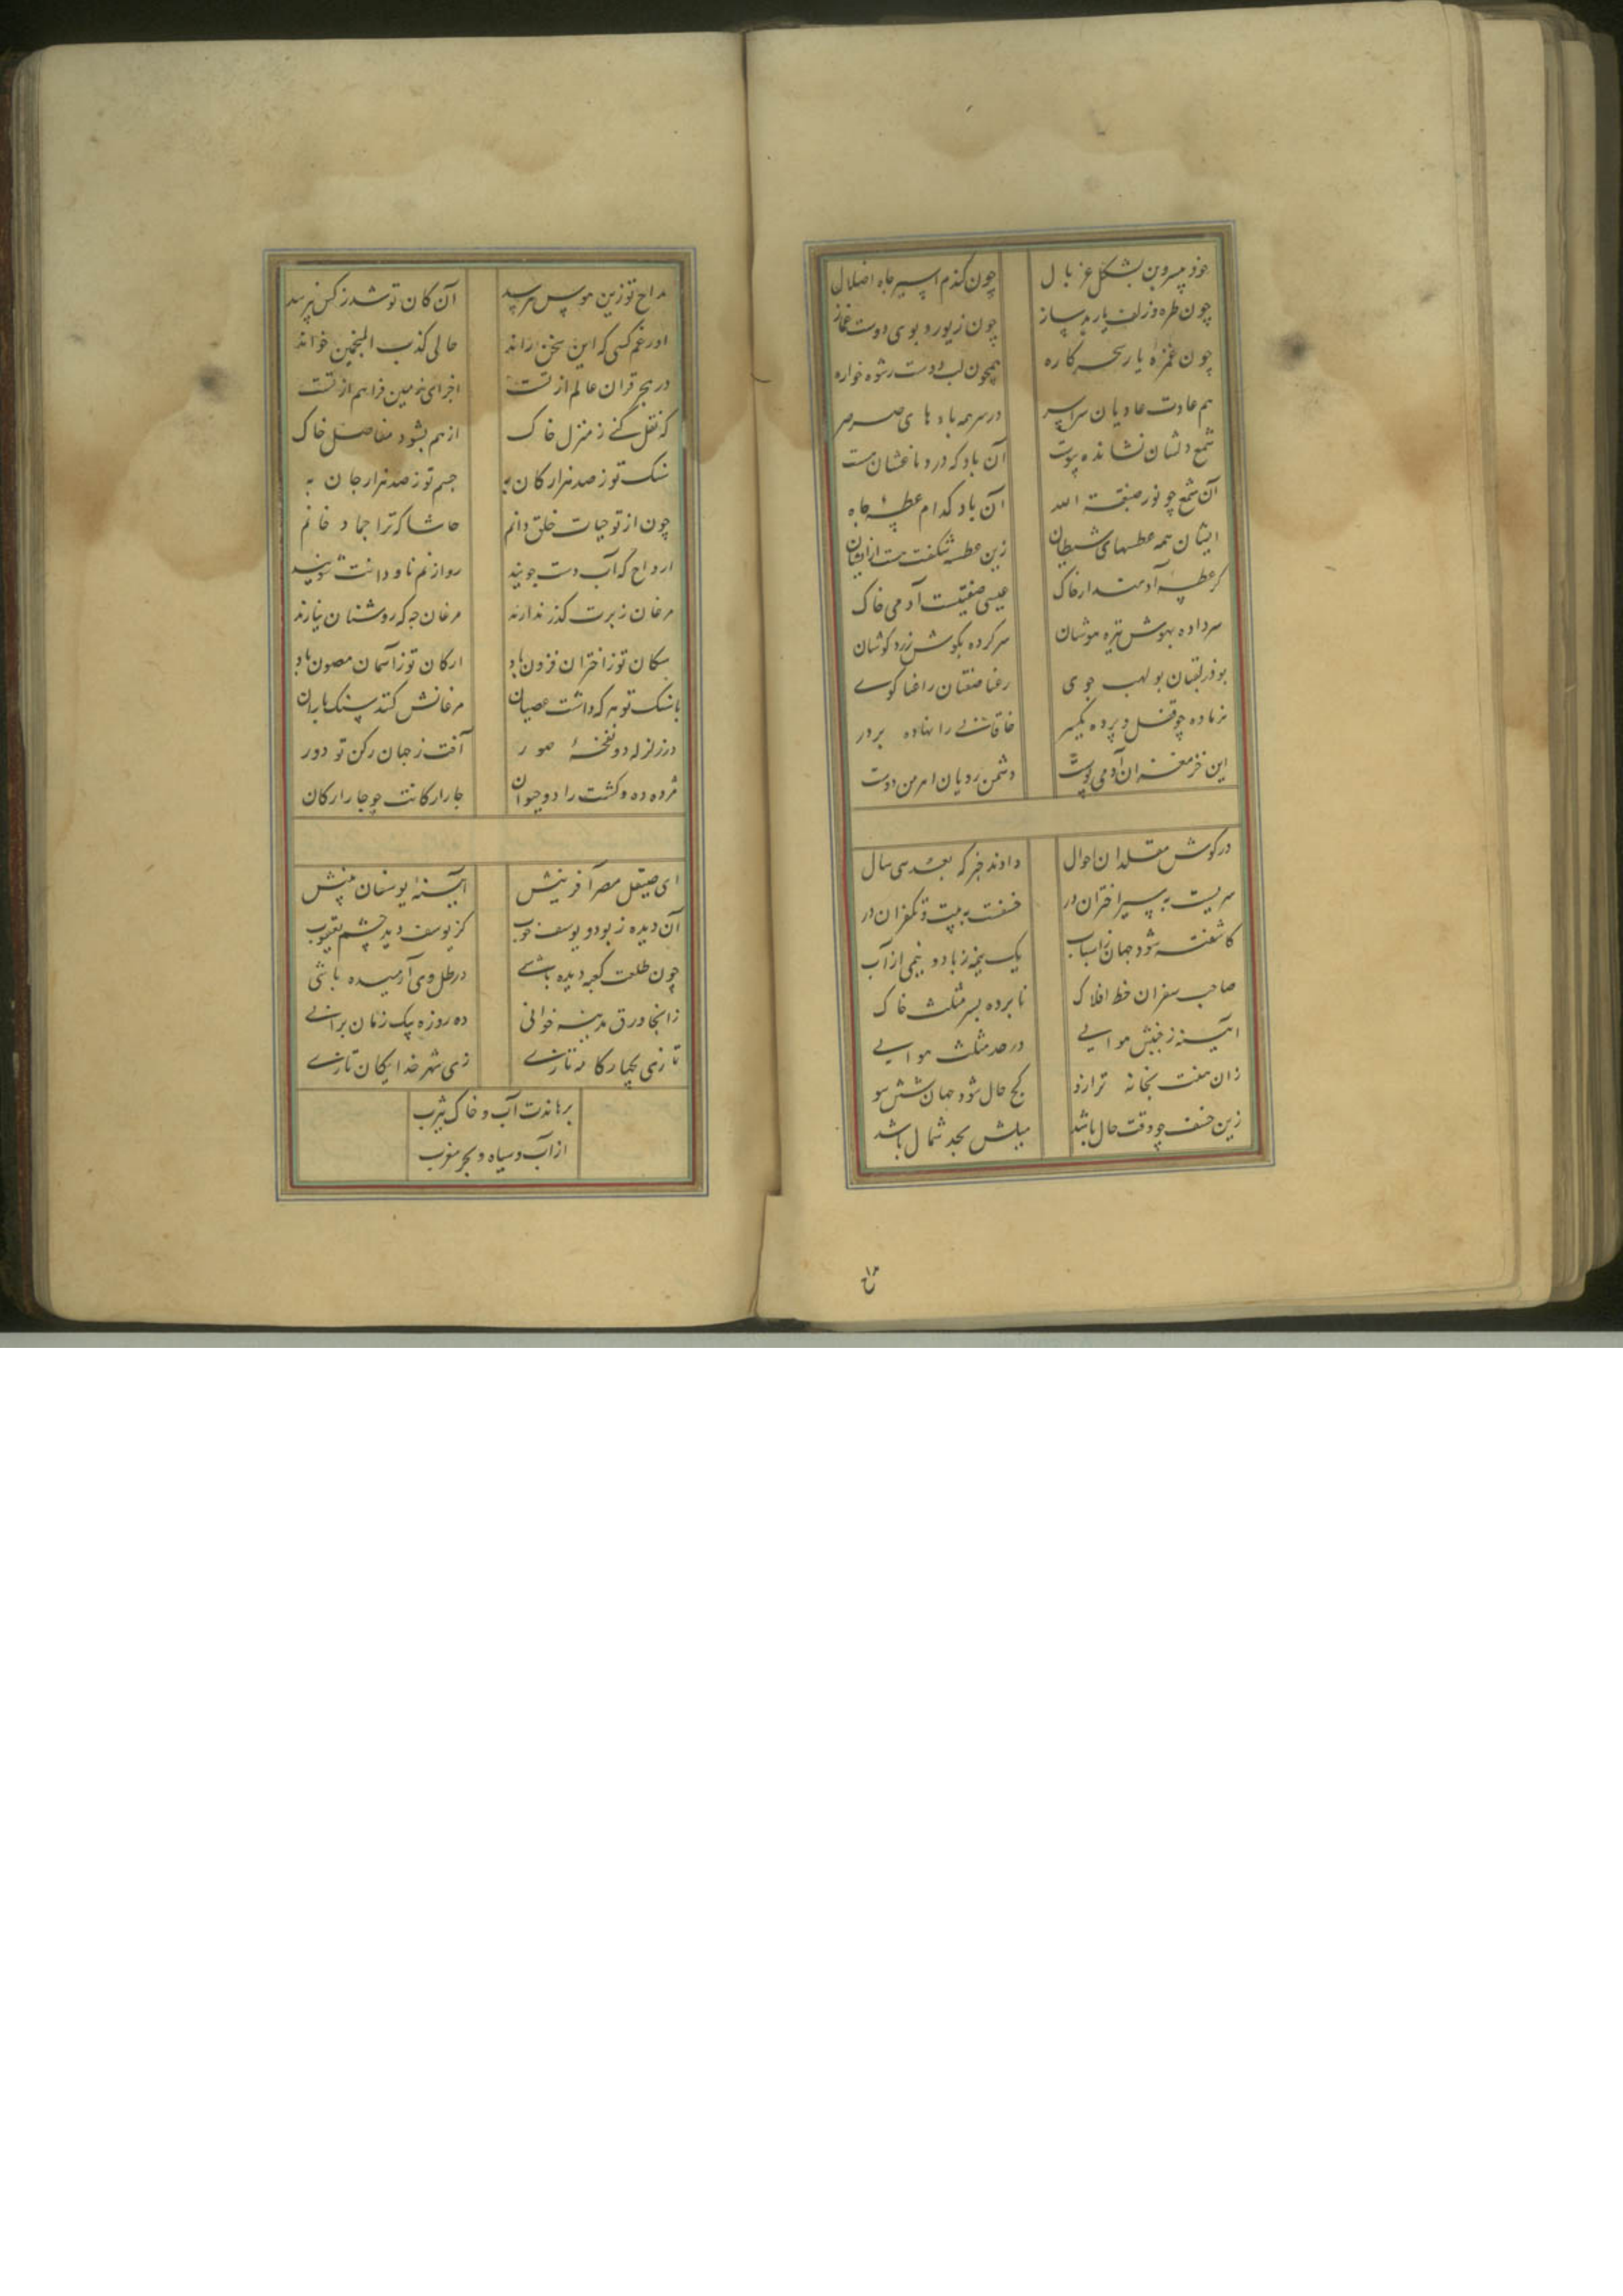 خود پیرون بشکل غربال
چون گندم اسیر جاه اضلال
چون طره و زلف یار بد ساز
چون زیور و بوی دوست غماز
چون غمزه یار سحر کاره
همچون لب دوست رشوه خواره
هم عادت عادیان سراسر
در سر همه بادهای صرصر
شمع دلشان نشانده پیوست
آن باد که در دماغشان هست
آن شمع چو نور صبغة الله
آن باد کدام عطسه جاه
ایشان همه عطسهای شیطان
زین عطسه شکفت هست ازیشان
کر عطسه آدمند از خاک
عیسی صفتیست آدمی خاک
سر داده بهوش تیره هوشان
سر کرده بگوش زرد گوشان
بوذر لقبان بولهب جوی
رعنا صفتان راعنا گوی
نر ماده چو قفل و پرده یکسر
خاقانی را نهاده بر در
این خر مغزان آدمی پوست
دشمن رویان اهرمن دوست
در گوش مقلدان احوال
دادند خبر که بعد سی سال
سریست به سیر اختران در
خسفست به بیست و یکقران در
کاشفته شود جهان ز اسباب
یک نیمه ز باد و نیمی از آب
صاحب سفران خط افلاک
نابرده بسر مثلث خاک
آیینه ز جنبش هوایی
در حد مثلث هوایی
زان هفت بخانه ترازو
کج حال شود جهان شش سو
زین خسف چو وقت حال باشد
میلش بحد شمال باشد
مداح تو زین هوس نپرسید
آن کان تو شد ز کس نپرسد
او رغم کسی که این سخن راند
حالی کذب المنجمین خواند
در هیچ قران عالم از تست
اجزای زمین فراهم از تست
که نقل کنی ز منزل خاک
از هم بشود مفاصل خاک
سنگ تو ز صد هزار کان به
جسم تو ز صد هزار جان به
چون از تو حیات خلق دانم
حاشا که ترا جماد خانم
ارواح که آب دست جویند
روز از نم ناودانت شویند
مرغان زبرت گذر ندارند
مرغان چه که روشنان نیارند
سکان تو ز اختران فزون باد
ارکان تو ز آسمان مصون باد
با سنگ تو هر که داشت عصیان
مرغانش کنند سنگ باران
در زلزله دو نفخهٔ صور
آفت ز جهان رکن تو دور
مژده ده و کشت را دو حیوان
چار ارکانت چو چار ارکان
ای صیقل مصر آفرینش
آیینهٔ یوسفان بینش
آن دیده ز بود و یوسف خوب
کز یوسف دید چشم یعقوب
چون طلعت کعبه دیده باشی
در ظل وی آرمیده باشی
زانجا ورق مدینه خوانی
ده روزه بیک زمان برانی
تازی بچهار کامه تازی
زی شهر خدایگان تازی
برهاندت آب و خاک یثرب
از آب سیاه و بحر مغرب